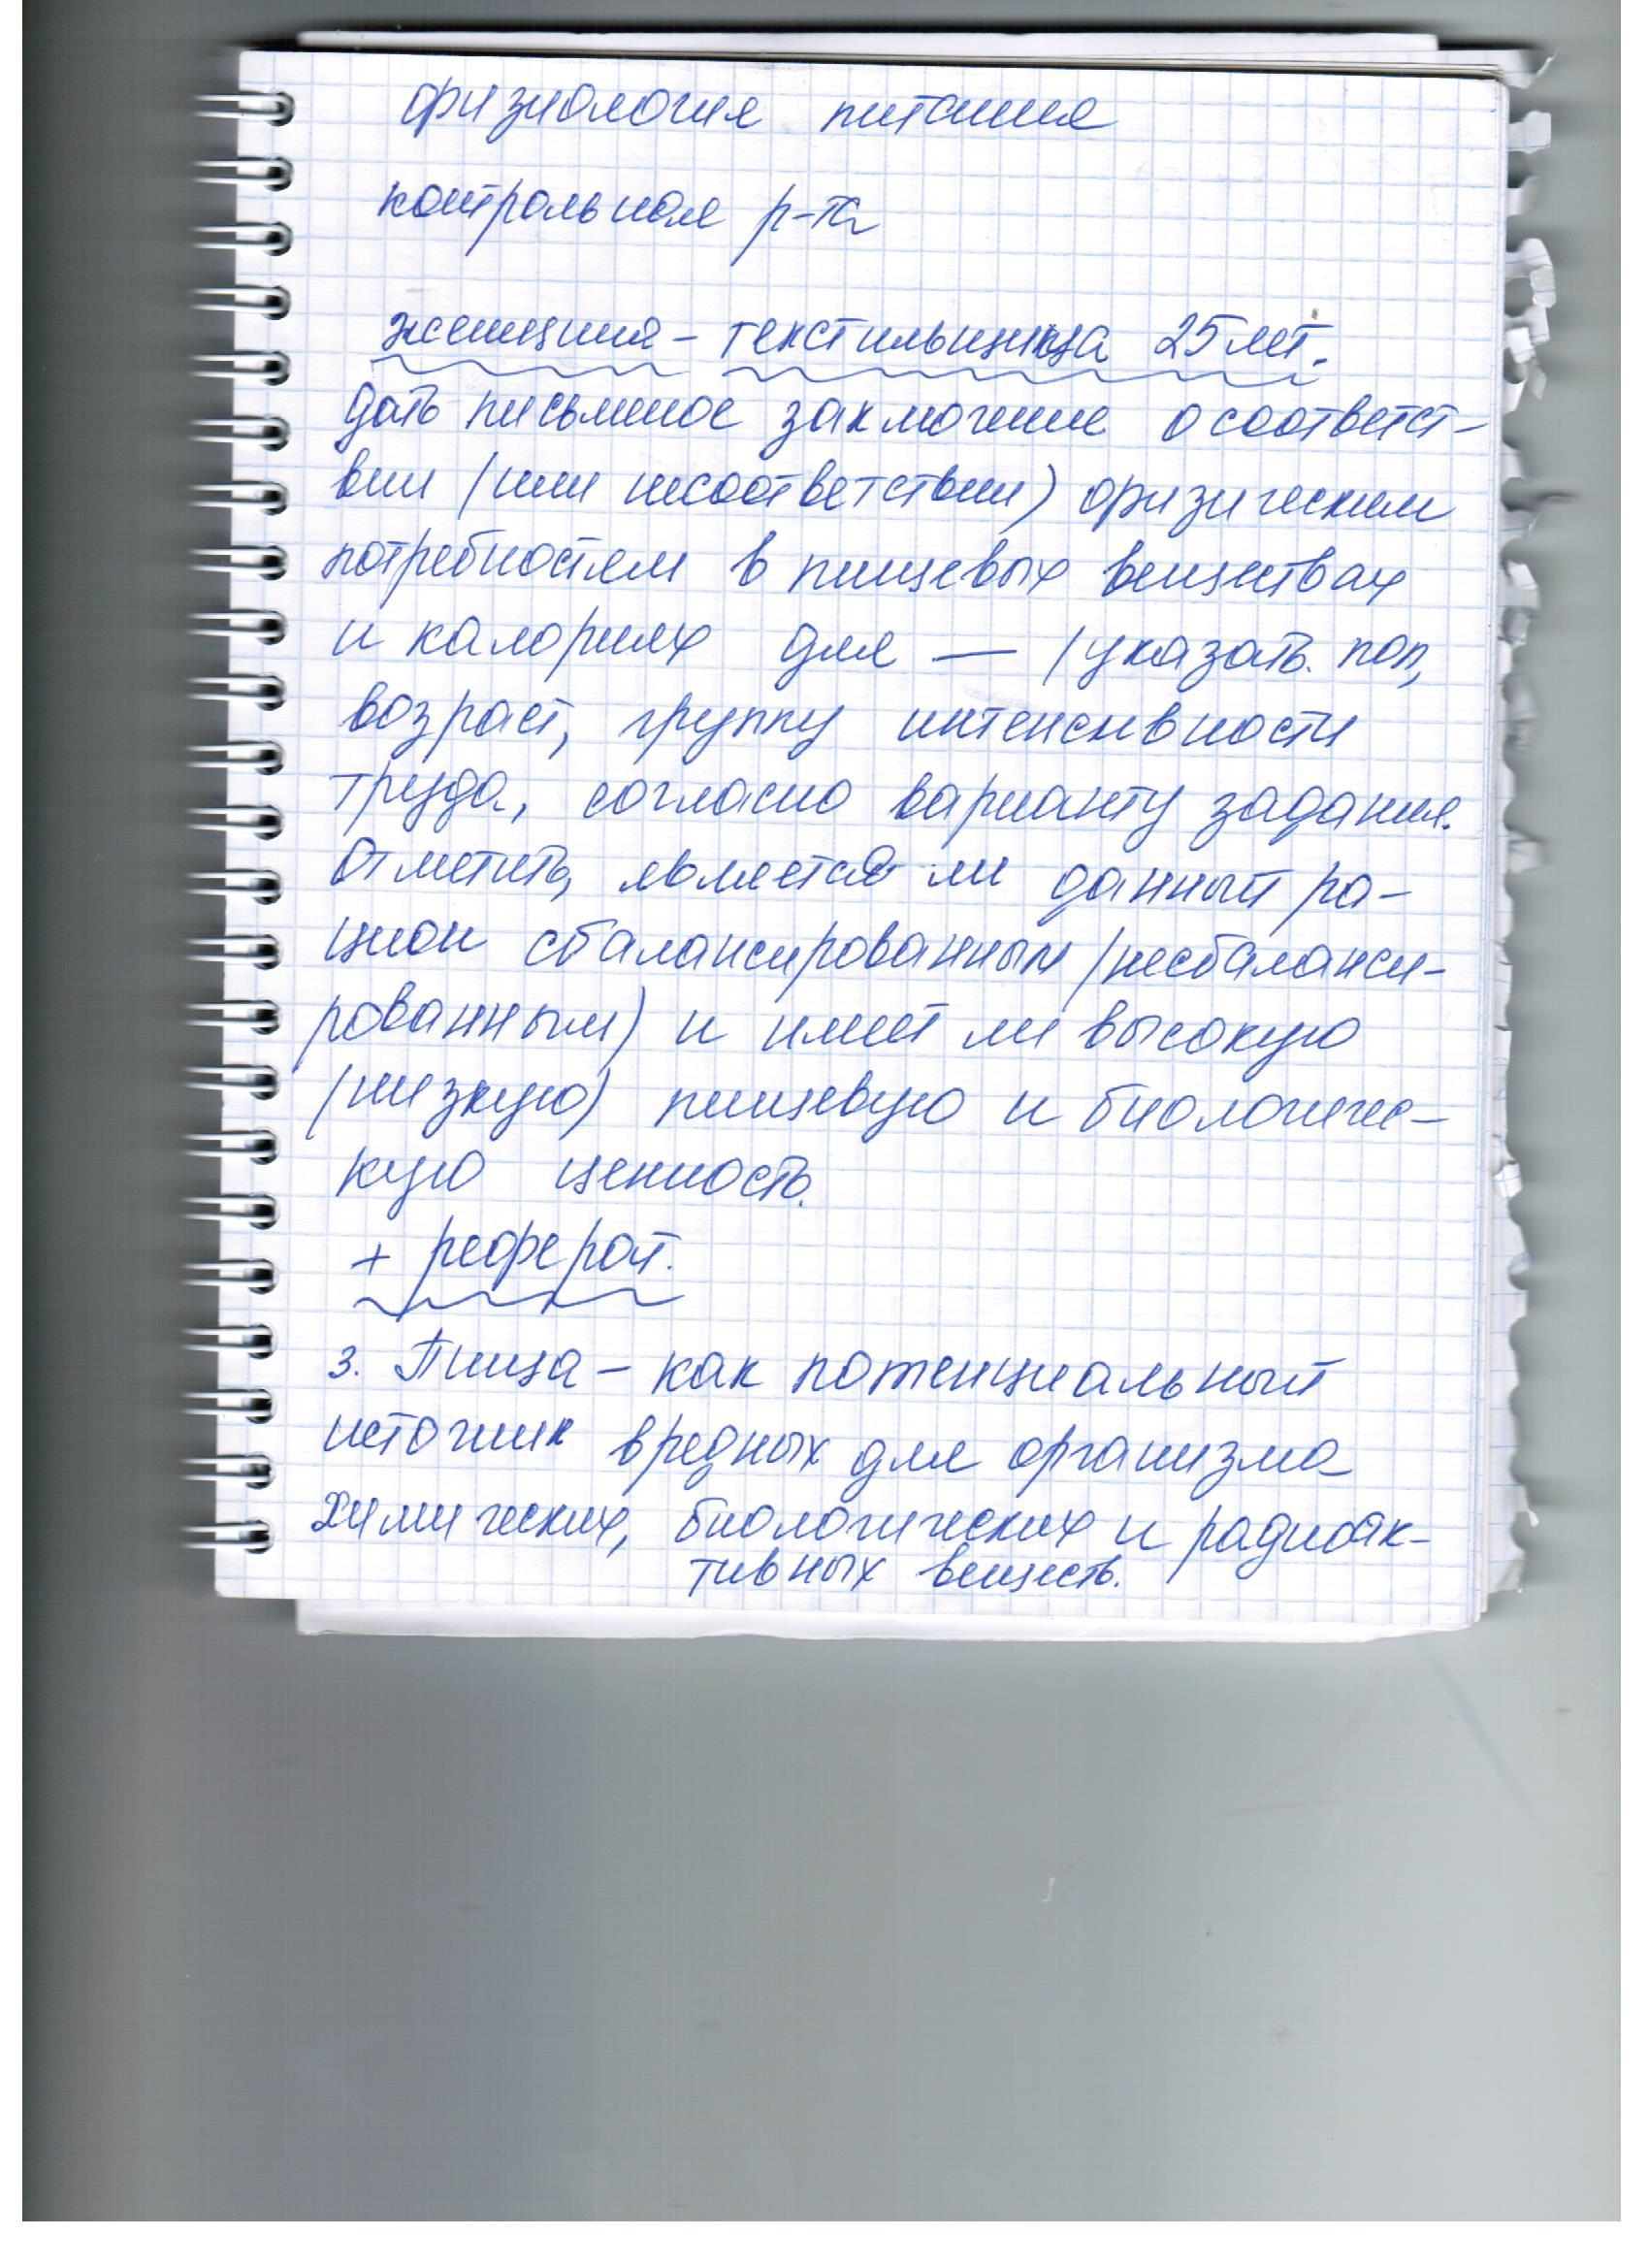 физиология питания
контрольная р-та
женщина - текстильщица 25 лет.
дать письменое заключение о соответст-
вии (или несоответствии) физическим
потребностям в пищевых веществах
и калориях для — (указать пол,
возраст, группу интенсивности
труда, согласно варианту задания.
Отметить, является ли данный ра-
цион сбалансированным (несбаланси-
рованным) и имеет ли высокую
(низкую) пищевую и биологичес-
кую ценность.
+ реферат.
3. Пища - как потенциальный
источник вредных для организма
химических, биологических и радиоак-
тивных веществ.